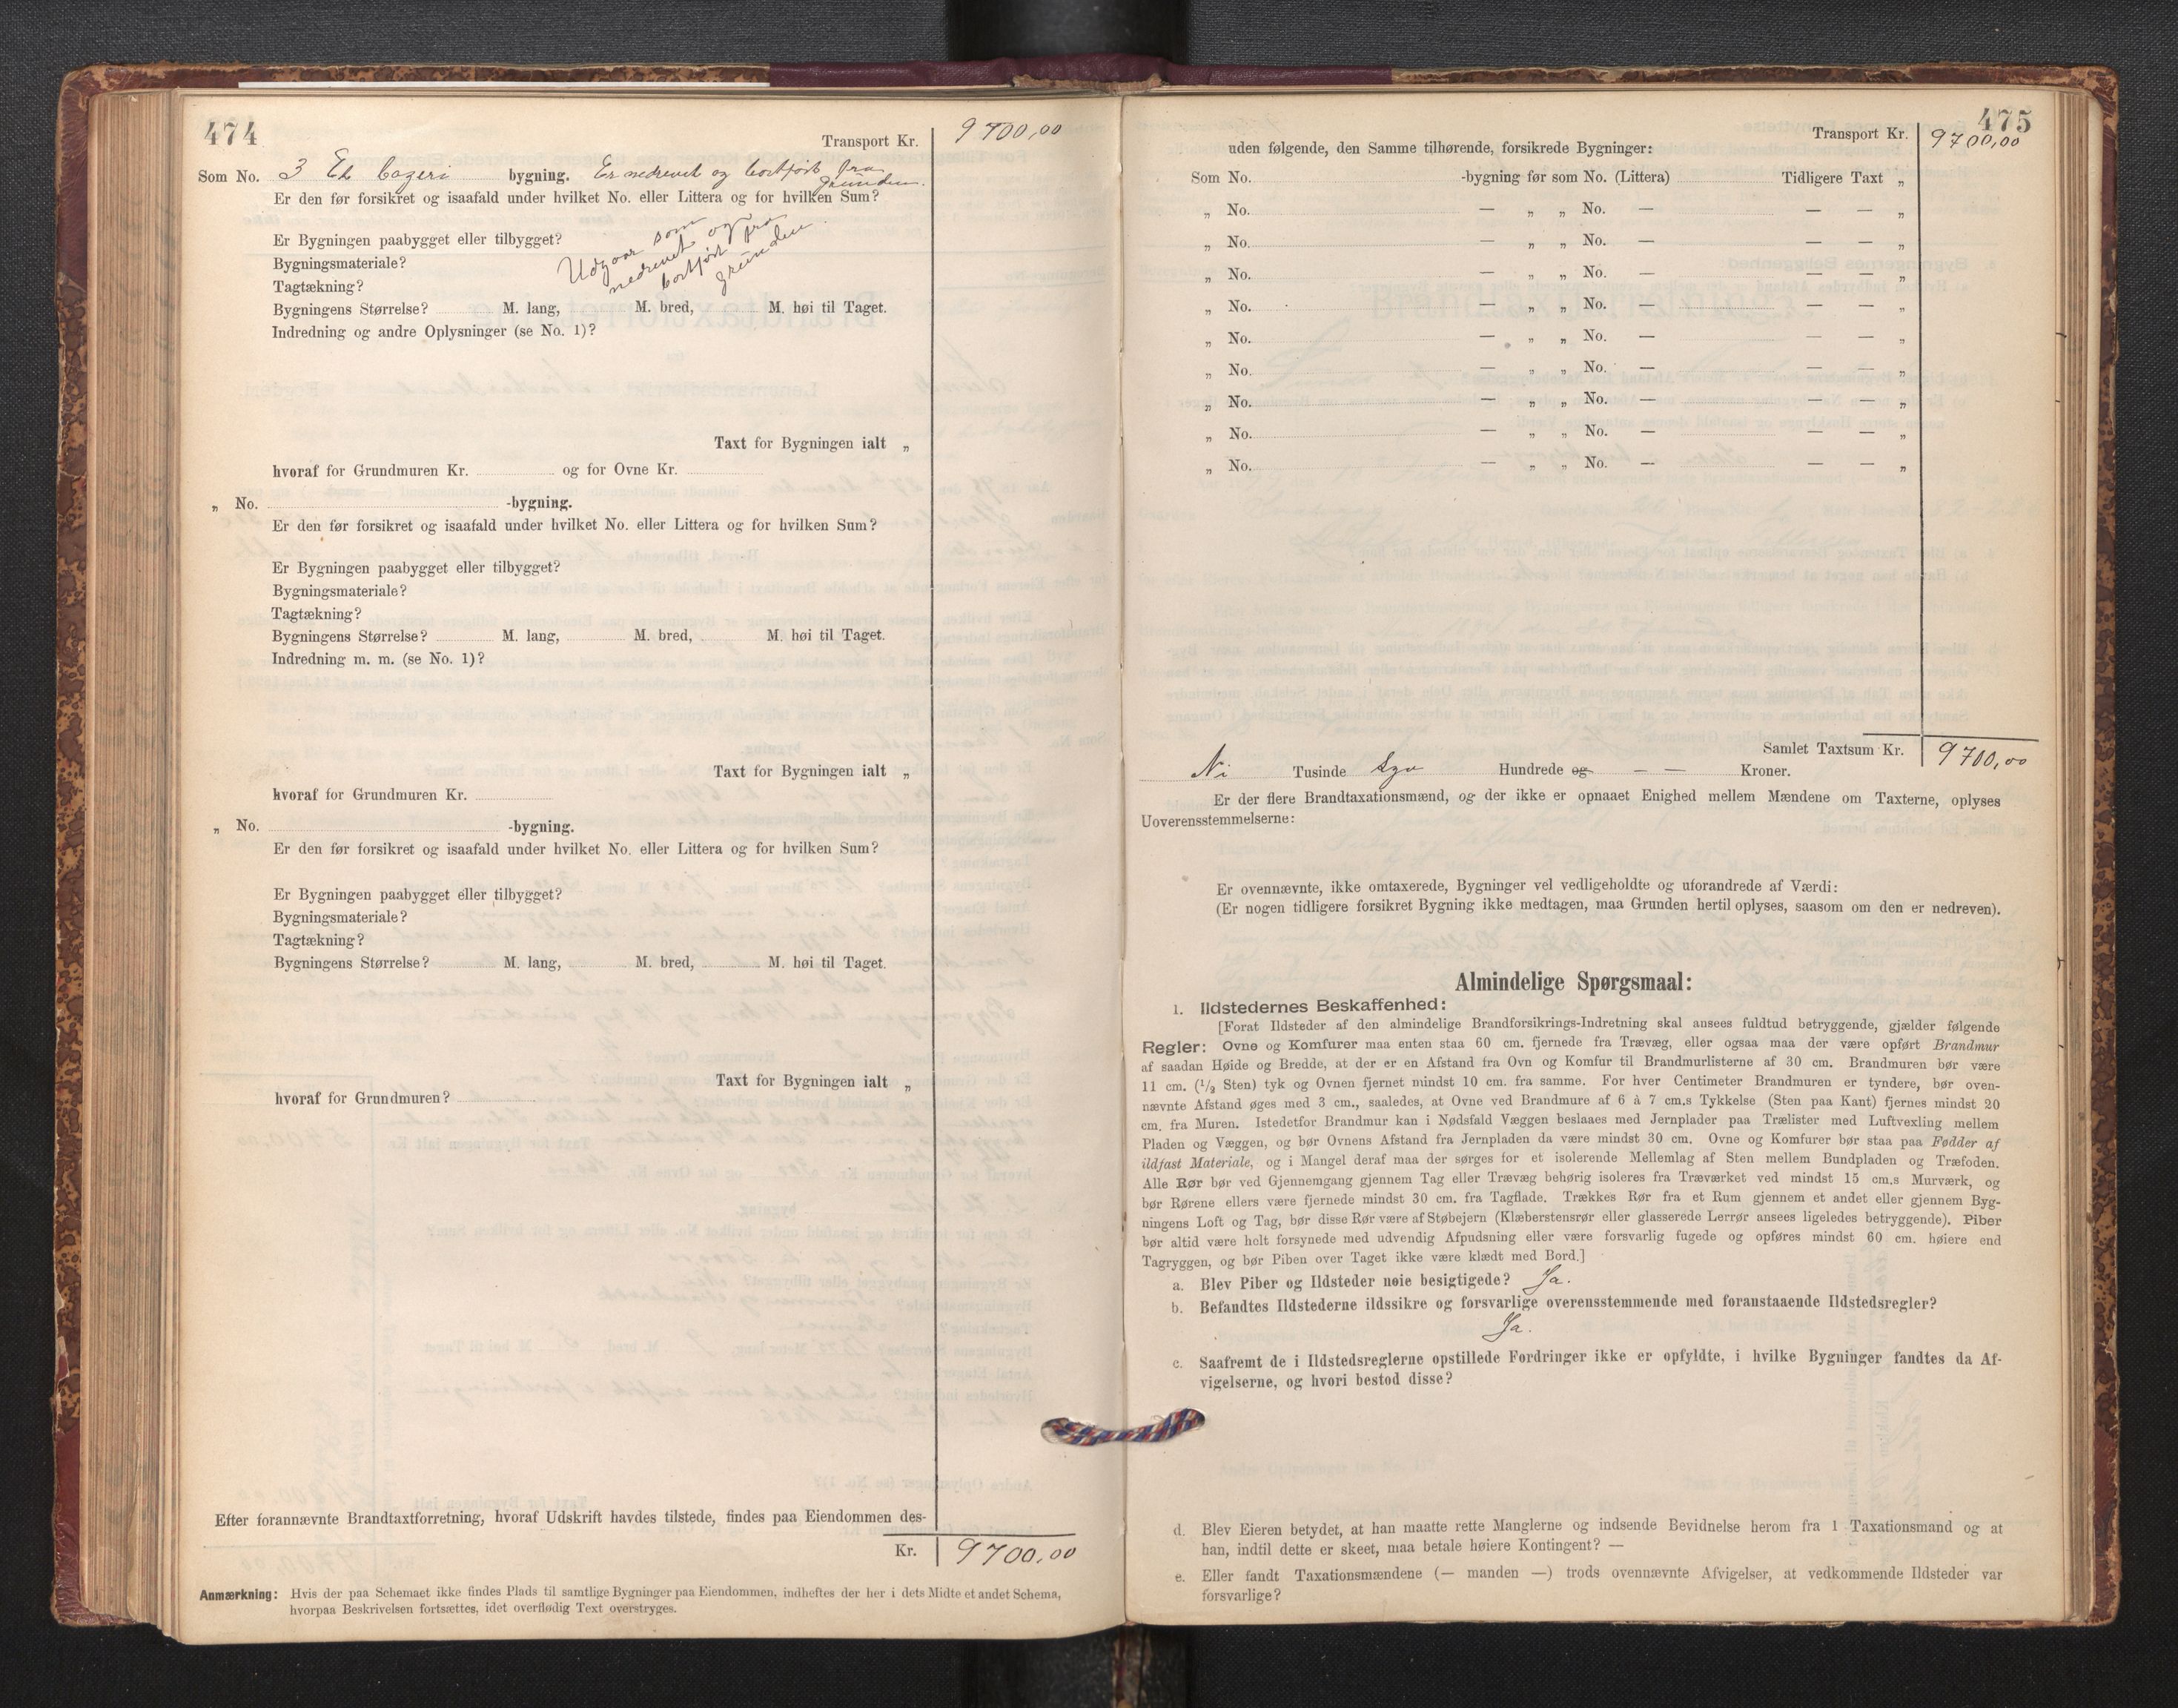 474
Transport Kr. 9700,00
Som No. 3 Et bageri bygning. Er nedrevet og bortført fra
grunden.
Er den før forsikret og isaafald under hvilket No. eller Littera og for hvilken Sum?
Udgaar som
nedrevet og
bortført fra
grunden
Er Bygningen paabygget eller tilbygget?
Bygningsmateriale?
Tagtækning?
Bygningens Størrelse? M. lang, M. bred, M. høi til Taget.
Indredning og andre Oplysninger (se No. 1)?
Taxt for Bygningen ialt „
hvoraf for Grundmuren Kr. og for Ovne Kr.
„ No. -bygning.
Er den før forsikret og isaafald under hvilket No. eller Littera og for hvilken Sum?
Er Bygningen paabygget eller tilbygget?
Bygningsmateriale?
Tagtækning?
Bygningens Størrelse? M. lang, M. bred, M. høi til Taget.
Indredning m. m. (se No. 1)?
Taxt for Bygningen ialt „
hvoraf for Grundmuren Kr.
„ No. -bygning.
Er den før forsikret og isaafald under hvilket No. eller Littera og for hvilken Sum?
Er Bygningen paabygget eller tilbygget?
Bygningsmateriale?
Tagtækning?
Bygningens Størrelse? M. lang, M. bred, M. høi til Taget.
Taxt for Bygningen ialt „
hvoraf for Grundmuren?
Efter forannævnte Brandtaxtforretning, hvoraf Udskrift havdes tilstede, findes paa Eiendommen des-
Kr. 9700,00
Anmærkning: Hvis der paa Schemaet ikke findes Plads til samtlige Bygninger paa Eiendommen, indheftes der her i dets Midte et andet Schema,
hvorpaa Beskrivelsen fortsættes, idet overflødig Text overstryges.
475
Transport Kr. 9700,00
uden følgende, den Samme tilhørende, forsikrede Bygninger:
Som No. -bygning før som No. (Littera) Tidligere Taxt „
„ No. — „ „ No. — — — „
„ No. — „ „ No. — — — „
„ No. — „ „ No. — — — „
„ No. — „ „ No. — — — „
„ No. — „ „ No. — — — „
„ No. — „ „ No. — — — „
„ No. — „ „ No. — — — „
„ No. — „ „ No. — — — „
„ No. — „ „ No. — — — „
Samlet Taxtsum Kr. 9700,00
Ni Tusinde syv Hundrede og — — Kroner.
Er der flere Brandtaxationsmænd, og der ikke er opnaaet Enighed mellem Mændene om Taxterne, oplyses
Uoverensstemmelserne:
Er ovennævnte, ikke omtaxerede, Bygninger vel vedligeholdte og uforandrede af Værdi:
(Er nogen tidligere forsikret Bygning ikke medtagen, maa Grunden hertil oplyses, saasom om den er nedreven).
Almindelige Spørgsmaal:
1. Ildstedernes Beskaffenhed:
[Forat Ildsteder af den almindelige Brandforsikrings-Indretning skal ansees fuldtud betryggende, gjælder følgende
Regler: Ovne og Komfurer maa enten staa 60 cm. fjernede fra Trævæg, eller ogsaa maa der være opført Brandmur
af saadan Høide og Bredde, at der er en Afstand fra Ovn og Komfur til Brandmurlisterne af 30 cm. Brandmuren bør være
11 cm. (1/2 Sten) tyk og Ovnen fjernet mindst 10 cm. fra samme. For hver Centimeter Brandmuren er tyndere, bør oven-
nævnte Afstand øges med 3 cm., saaledes, at Ovne ved Brandmure af 6 à 7 cm.s Tykkelse (Sten paa Kant) fjernes mindst 20
cm. fra Muren. Istedetfor Brandmur kan i Nødsfald Væggen beslaaes med Jernplader paa Trælister med Luftvexling mellem
Pladen og Væggen, og bør Ovnens Afstand fra Jernpladen da være mindst 30 cm. Ovne og Komfurer bør staa paa Fødder af
ildfast Materiale, og i Mangel deraf maa der sørges for et isolerende Mellemlag af Sten mellem Bundpladen og Træfoden.
Alle Rør bør ved Gjennemgang gjennem Tag eller Trævæg behørig isoleres fra Træværket ved mindst 15 cm.s Murværk, og
bør Rørene ellers være fjernede mindst 30 cm. fra Tagflade. Trækkes Rør fra et Rum gjennem et andet eller gjennem Byg-
ningens Loft og Tag, bør disse Rør være af Støbejern (Klæberstensrør eller glasserede Lerrør ansees ligeledes betryggende). Piber
bør altid være helt forsynede med udvendig Afpudsning eller være forsvarlig fugede og opføres mindst 60 cm. høiere end
Tagryggen, og bør Piben over Taget ikke være klædt med Bord.]
a. Blev Piber og Ildsteder nøie besigtigede? Ja.
b. Befandtes Ildstederne ildssikre og forsvarlige overensstemmende med foranstaaende Ildstedsregler?
Ja.
c. Saafremt de i Ildstedsreglerne opstillede Fordringer ikke er opfyldte, i hvilke Bygninger fandtes da Af-
vigelserne, og hvori bestod disse?
d. Blev Eieren betydet, at han maatte rette Manglerne og indsende Bevidnelse herom fra 1 Taxationsmand og at
han, indtil dette er skeet, maa betale høiere Kontingent? —
e. Eller fandt Taxationsmændene (— manden —) trods ovennævnte Afvigelser, at vedkommende Ildsteder var
forsvarlige?